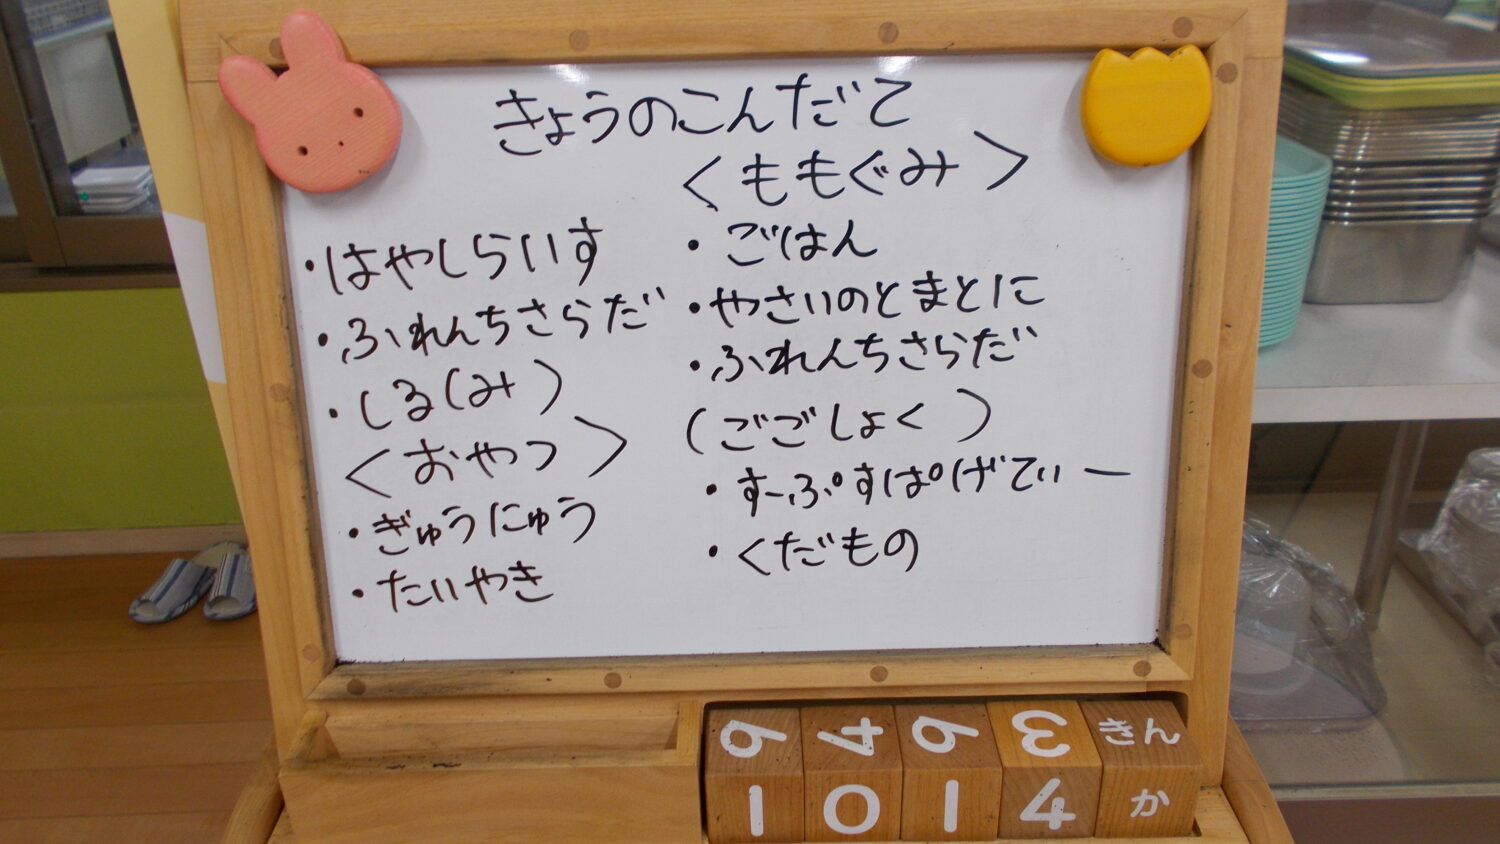 きょうのこんだて
・はやしらいす
・ふれんちさらだ
・しる(み )
<おやつ>
・ぎゅうにゅう
・たいやき
<ももぐみ>
・ごはん
・やさいのとまとに
・ふれんちさらだ
(ごごしょく )
・すーぷすぱげてぃー
・くだもの
きん
1 0 1 4 か